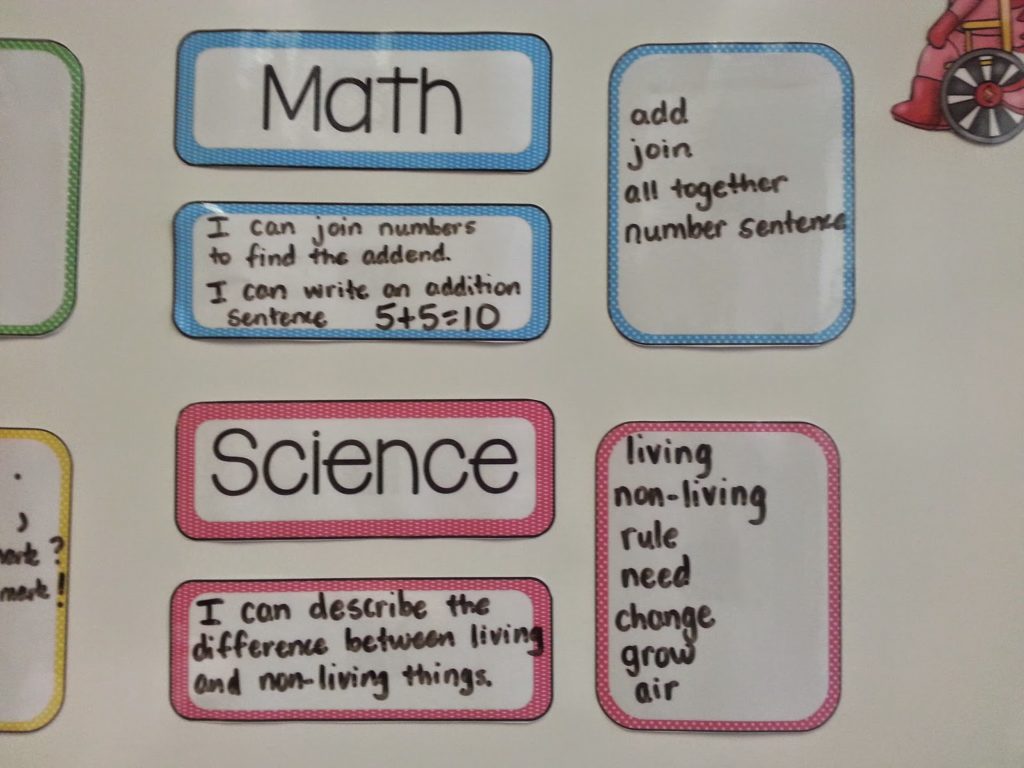 Math
I can join numbers
to find the addend.
I can write an addition
sentence 5+5=10
add
join
all together
number sentence
Science
I can describe the
difference between living
and non-living things.
living
non-living
rule
need
change
grow
air
.
,
?
mark !